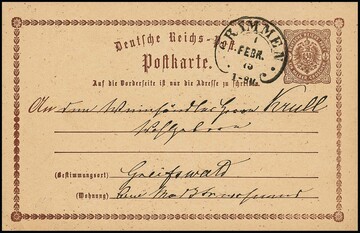 Deutsche Reichs-Post.
Postkarte.
Auf die Vorderseite ist nur die Adresse zu schreiben
GRIMMEN
1
FEBR.
75
An den Weinhändler Herrn Krull
Wohlgeboren
(Bestimmungsort) Greifswald
(Wohnung)